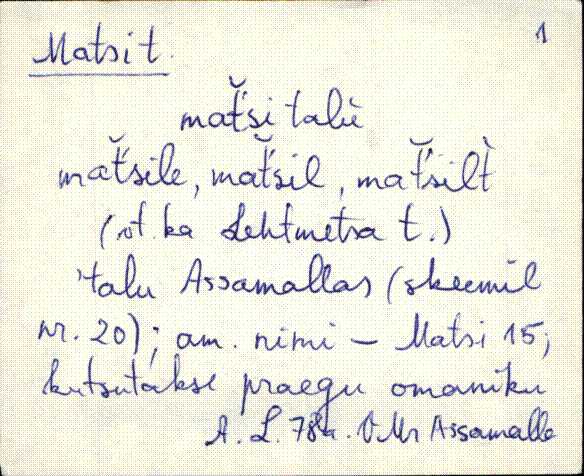 Matsi t. 1
mat̆'si talu
mat̆'sile, mat̆'sil, mat̆'silt̀
(vt. ka Lehtmetsa t.)
'talu Assamallas (skeemil
nr. 20); am. nimi – Matsi 15;
kutsutakse praegu omaniku
A. L. 78a. VMr Assamalla